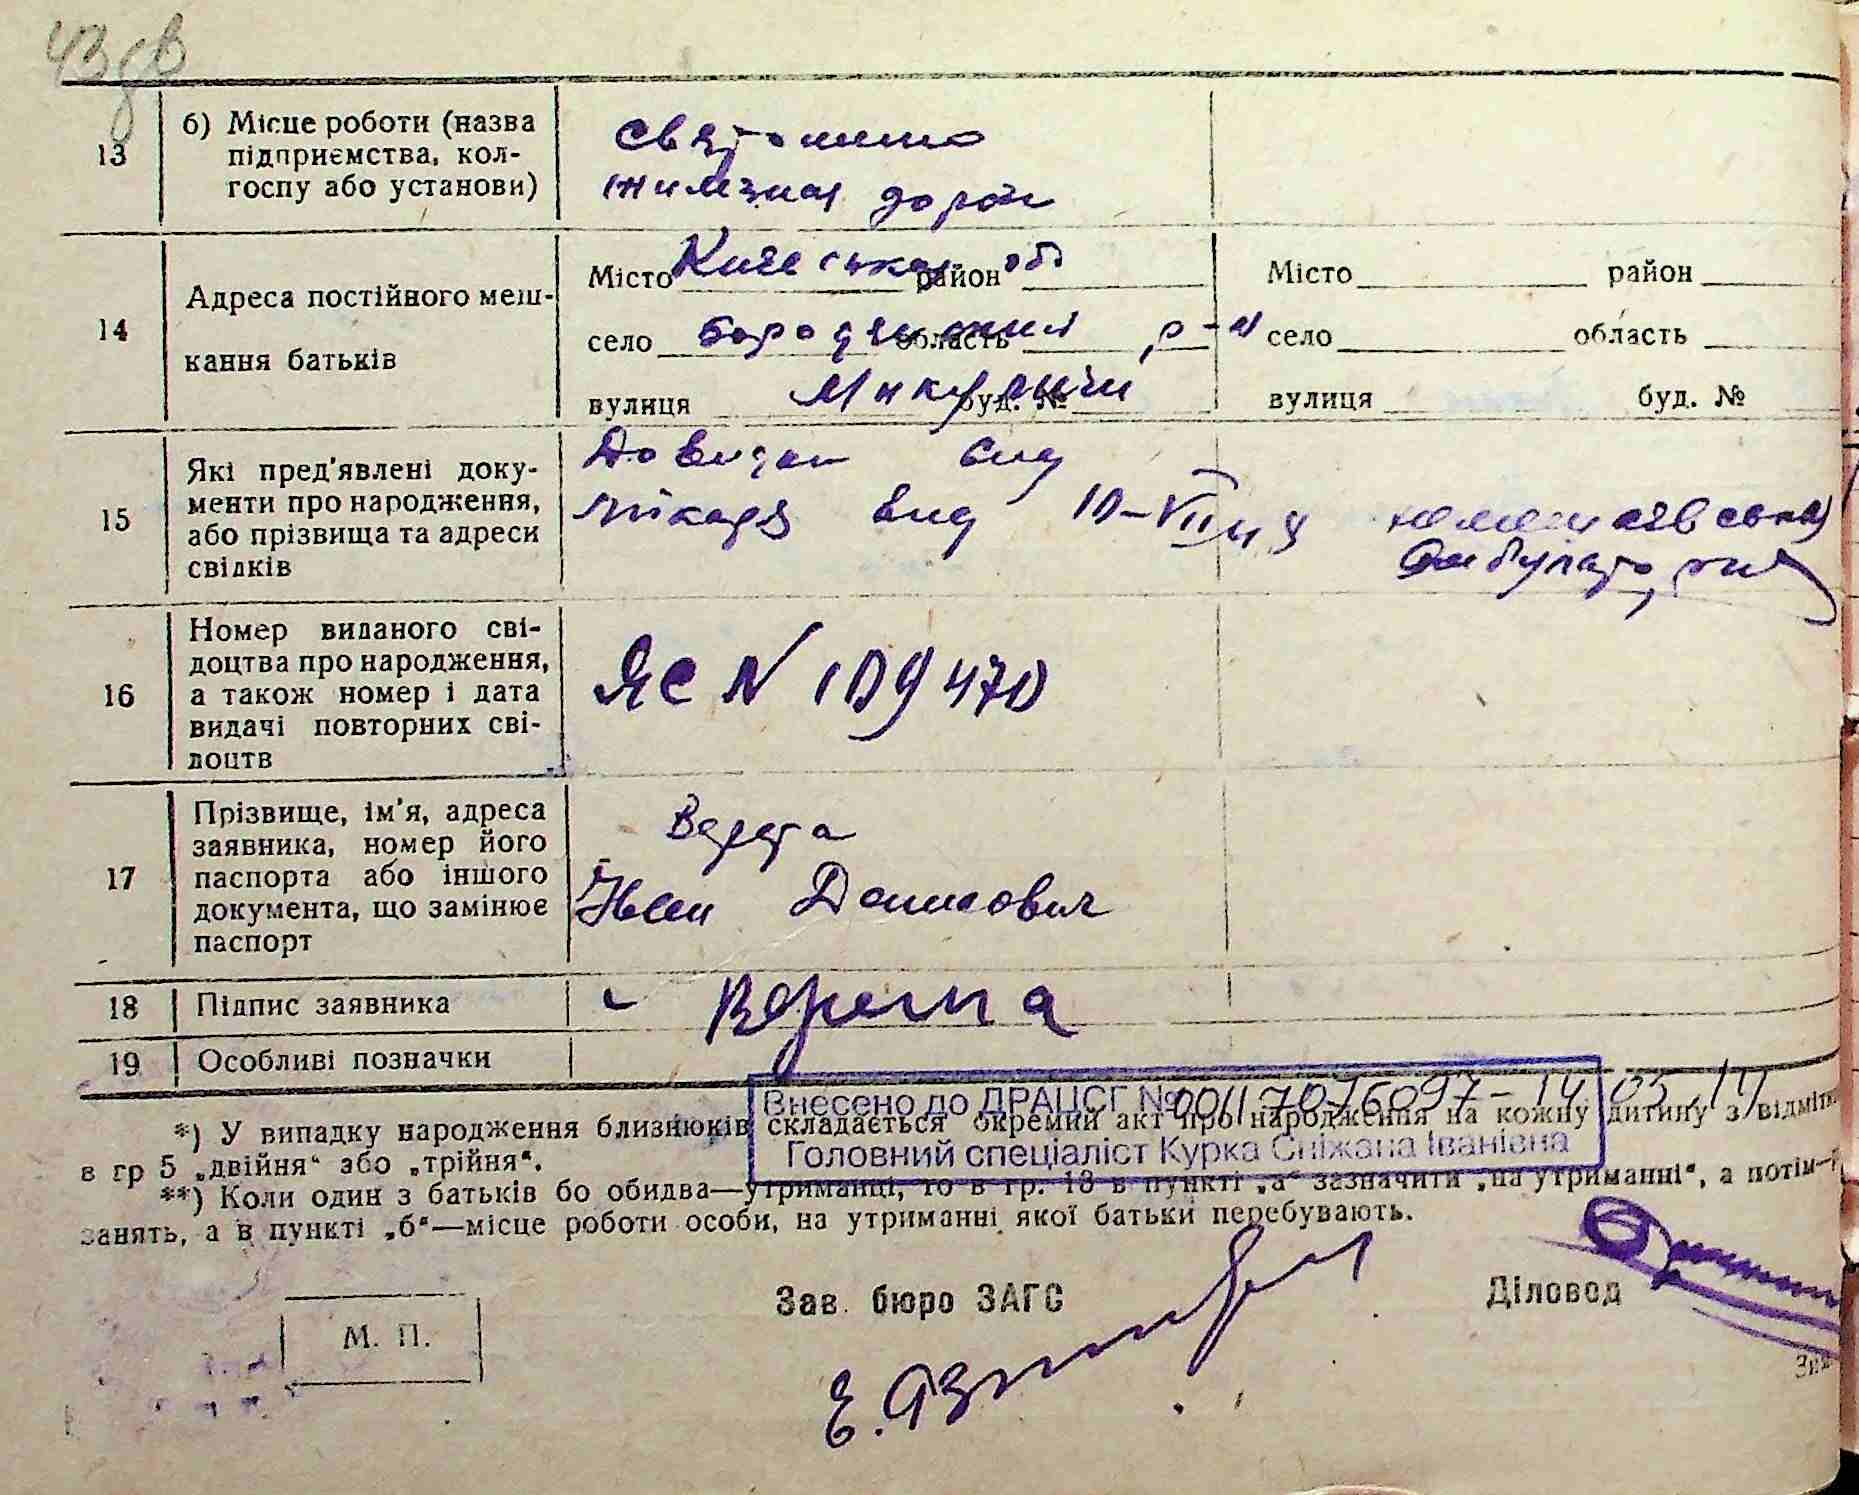 43 дв
13 б) Місце роботи (назва
підприємства, кол-
госпу або установи)
Святошино
дорои
14 Адреса постійного меш-
кання батьків
Місто Київська район об
село Бородянський область р-н
вулиця Микуличі буд. №
Місто район
село область
вулиця буд. №
15 Які пред'явлені доку-
менти про народження,
або прізвища та адреси
свідків
Довидка вид
лікаря вид 10-VII
16 Номер виданого сві-
доцтва про народження,
а також номер і дата
видачі повторних сві-
доцтв
ЯС N 109470
17 Прізвище, ім'я, адреса
заявника, номер його
паспорта або іншого
документа, що замінює
паспорт
Верета
Іван Данилович
18 Підпис заявника
Верета
19 Особливі позначки
Внесено до ДРАЦСГ № 00117076097-14 03.14
*) У випадку народження близнюків складається окремий акт про народження на кожну дитину з відміт
Головний спеціаліст Курка Сніжана Іванівна
в гр 5 „двійня“ або „трійня“.
**) Коли один з батьків бо обидва—утриманці, то в гр. 13 в пункті „а“ зазначити „на утриманні“, а потім—
занять, а в пункті „б“—місце роботи особи, на утриманні якої батьки перебувають.
Зав. бюро ЗАГС
Діловод
М. П.